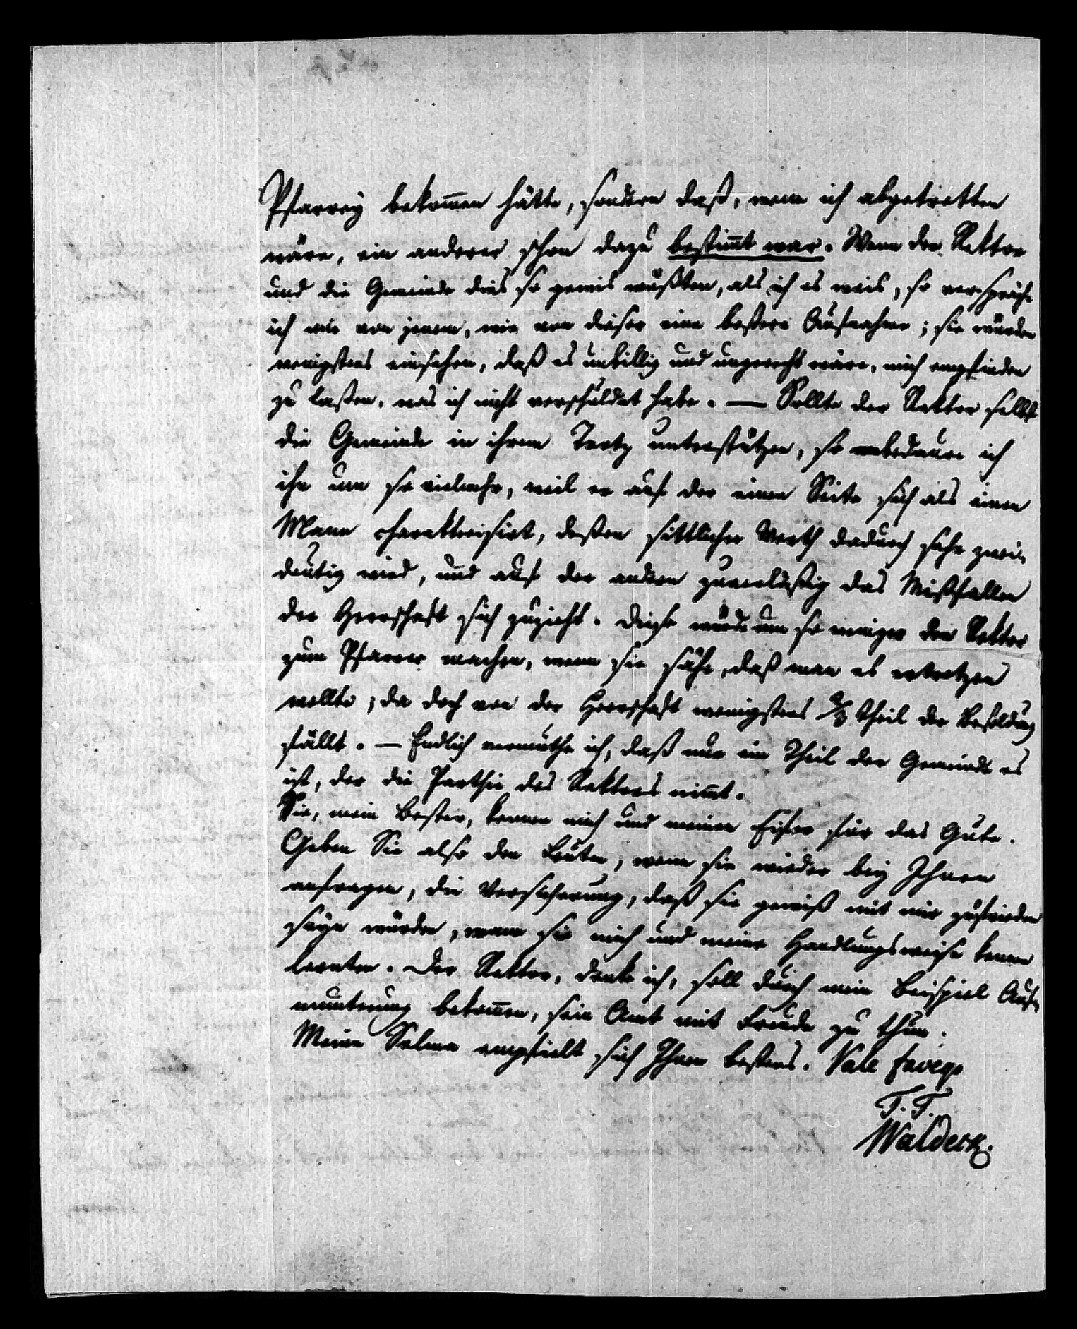 Pfarrey bekom̅en hätte, sondern daß, wenn ich abgetretten
wäre, ein anderer schon dazu bestim̅t war. Wenn der Rektor
und die Gemeinde dies so gewis wüßten, als ich es weis, so verspräche
ich mir von jenem, wie von dieser eine bessere Aufnahme; sie würden
wenigstens einsehen, daß es unbillig und ungerecht wäre, mich empfinden
zu laßen, was ich nicht verschuldet habe. — Sollte der Rektor selbst
die Gemeinde in ihrem Trotz unterstützen, so bedaure ich
ihn um so vielmehr, weil er auf der einen Seite sich als einen
Mann charakterisirt, deßen sittlicher Werth dadurch sehr zwei-
deutig wird, und auf der andern zuverläßig das Mißfallen
der Herrschaft sich zuzieht. Diese würde um so weniger den Rektor
zum Pfarrer machen, wenn sie sähe, daß man es ertrotzen
wollte; da doch von der Herrschaft wenigstens 2/3 theil der Besoldung
fällt. — Endlich vermuthe ich, daß nur ein Theil der Gemeinde es
ist, der die Parthie des Rektors nim̅t.
Sie, mein Bester, kennen mich und meinen Eifer für das Gute.
Geben Sie also den Leuten, wenn sie wieder bey Ihnen
anfragen, die Versicherung, daß sie gewiß mit mir zufrieden
seyn würden, wenn sie mich und meine Handlungsweise kennen
lernten. Der Rektor, denke ich, soll durch mein Beispiel Auf-
munterung bekom̅en, sein Amt mit Freude zu thun.
Meine Selma empfielt sich Ihnen bestens. Vale faveqe
T. T.
Waldeck.